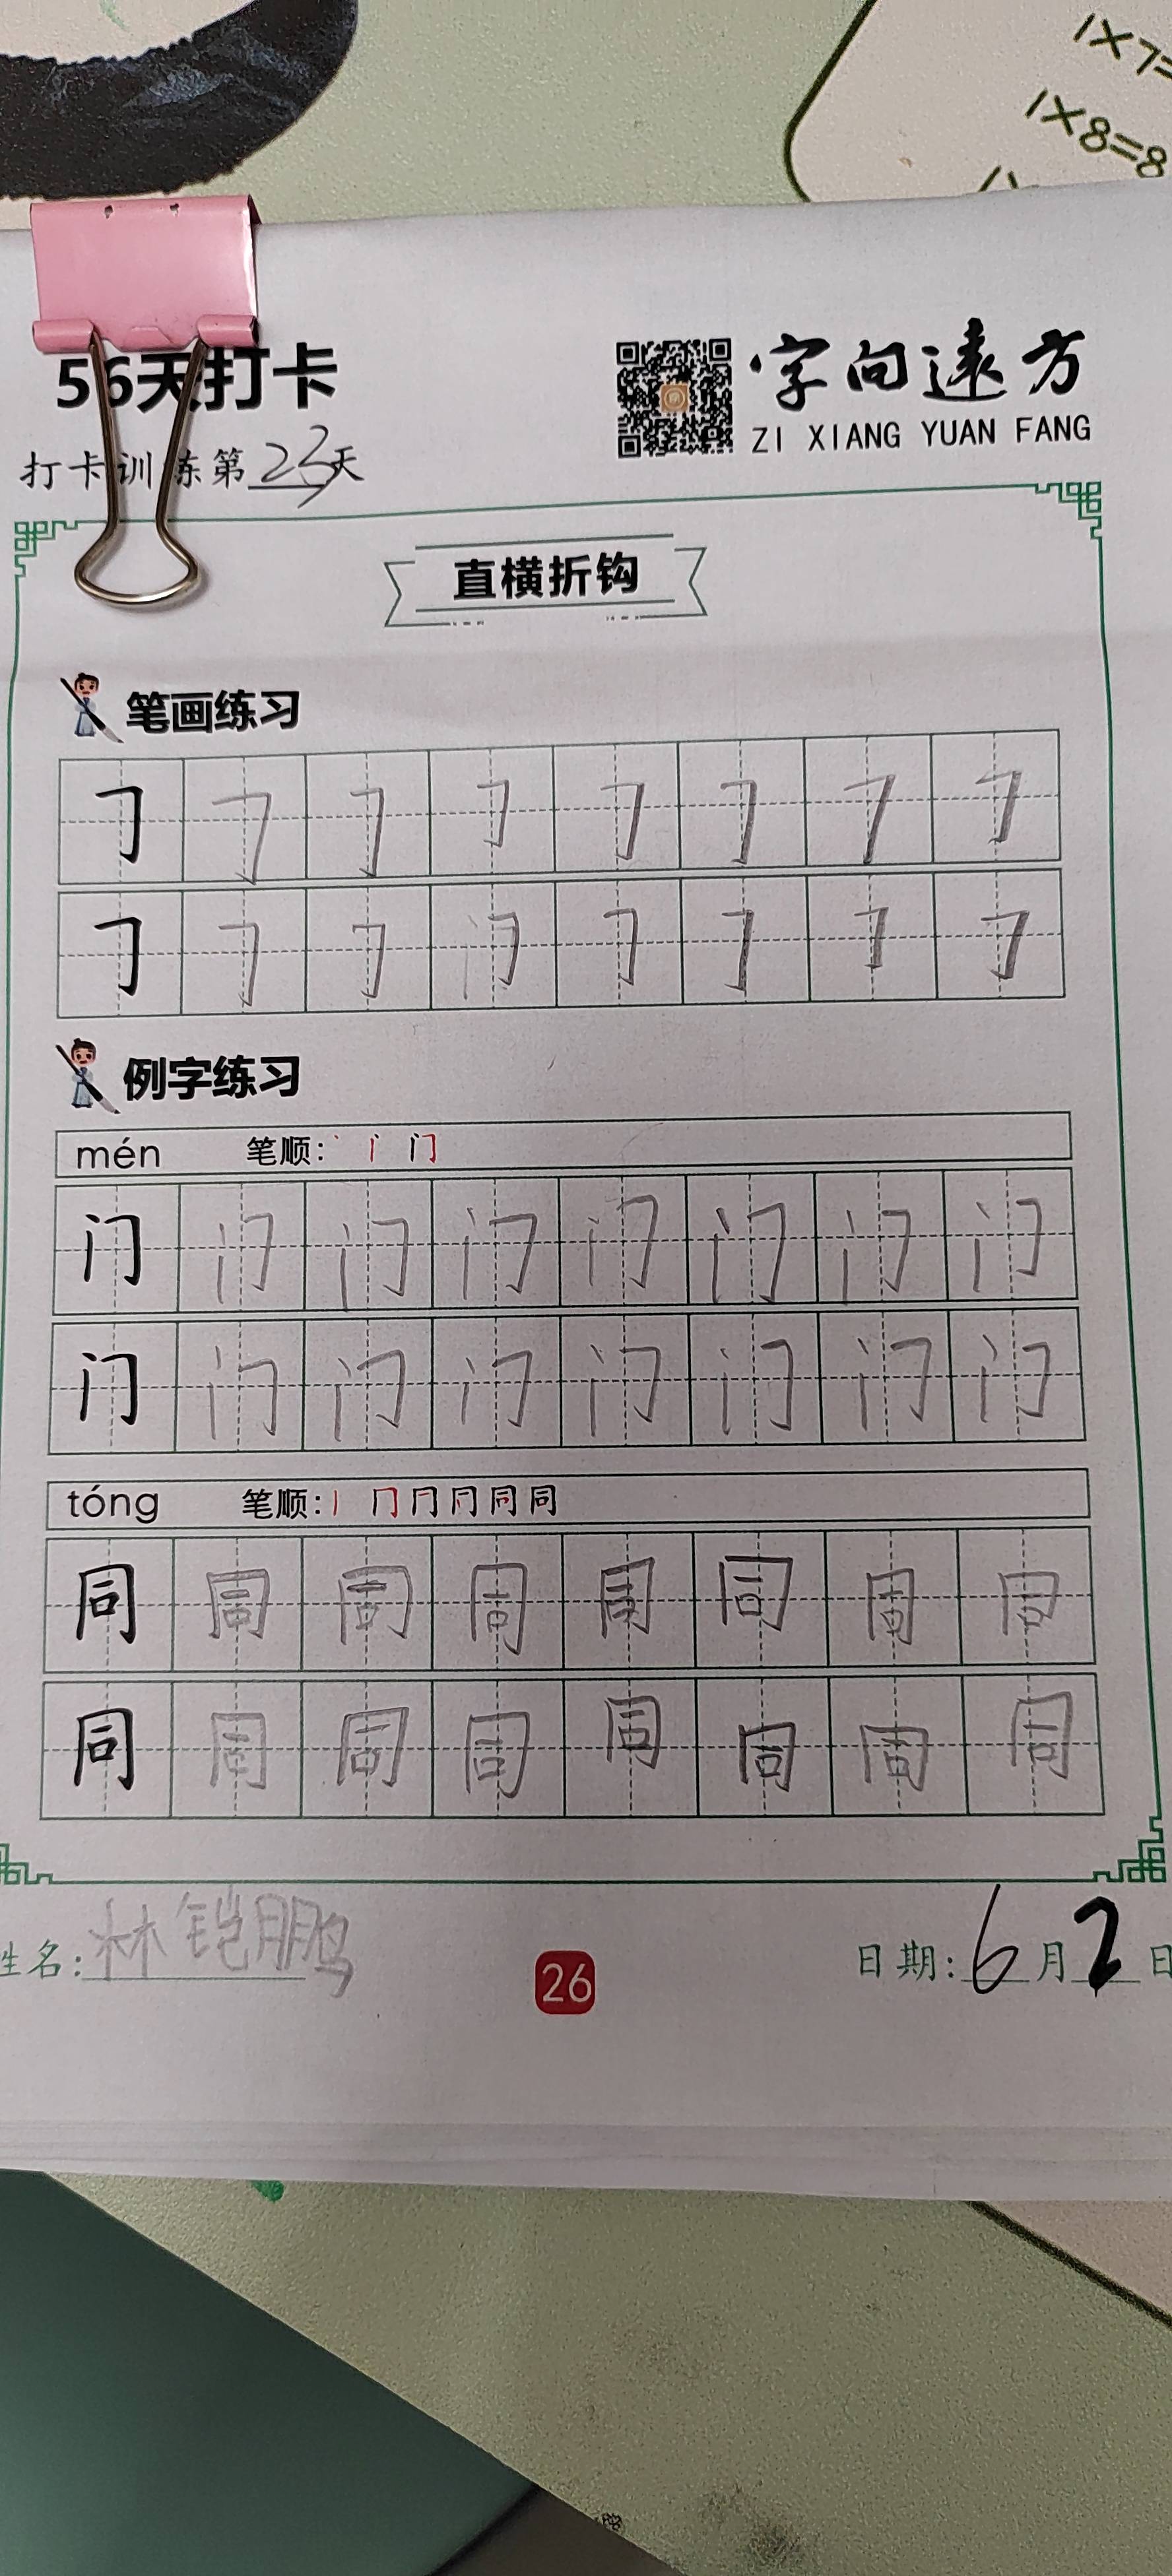 1×7=
1×8=8
56天打卡
字向遠方
ZI XIANG YUAN FANG
打卡训练第23天
直横折钩
笔画练习
㇆ ㇆ ㇆ ㇆ ㇆ ㇆ ㇆ ㇆
㇆ ㇆ ㇆ ㇆ ㇆ ㇆ ㇆ ㇆
例字练习
mén 笔顺: 丶 丨 门
门 门 门 门 门 门 门 门
门 门 门 门 门 门 门 门
tóng 笔顺: 丨 冂 同 同
同 同 同 同 同 同 同 同
同 同 同 同 同 同 同 同
姓名: 林铠鹏
26
日期: 6月2日